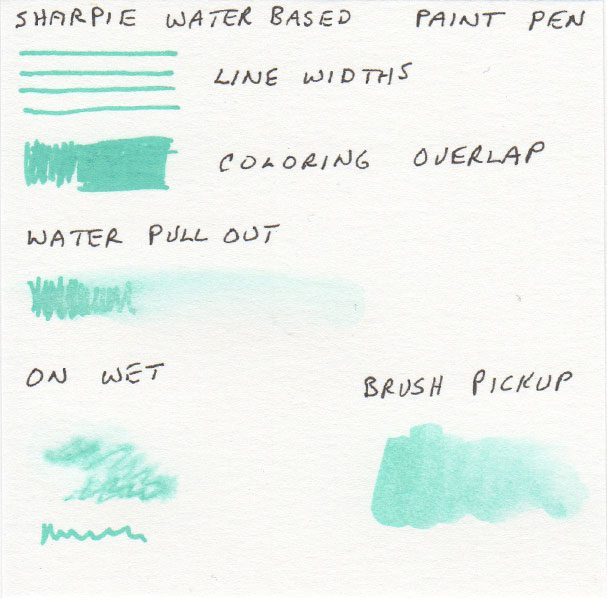 SHARPIE WATER BASED PAINT PEN
LINE WIDTHS
COLORING OVERLAP
WATER PULL OUT
ON WET
BRUSH PICKUP